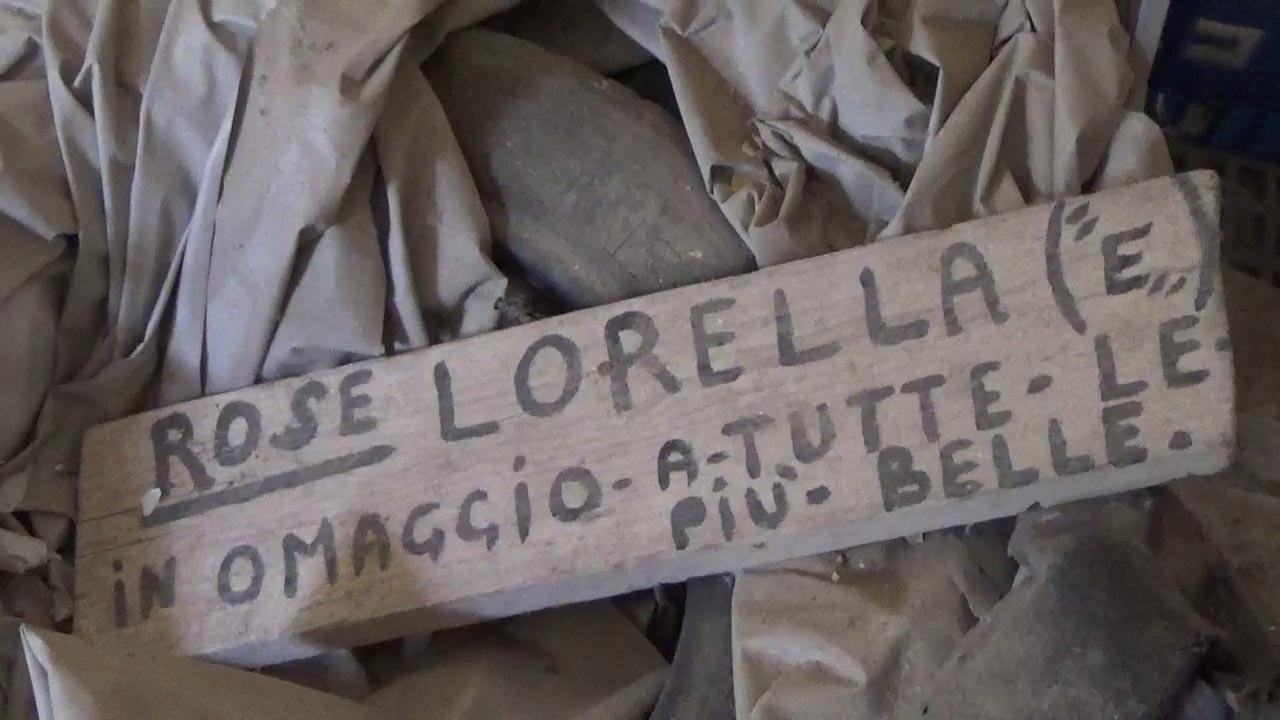 ROSE LORELLA ("E„)
iN OMAGGiO - A - TUTTE - LE LE
PiÙ - BELLE.